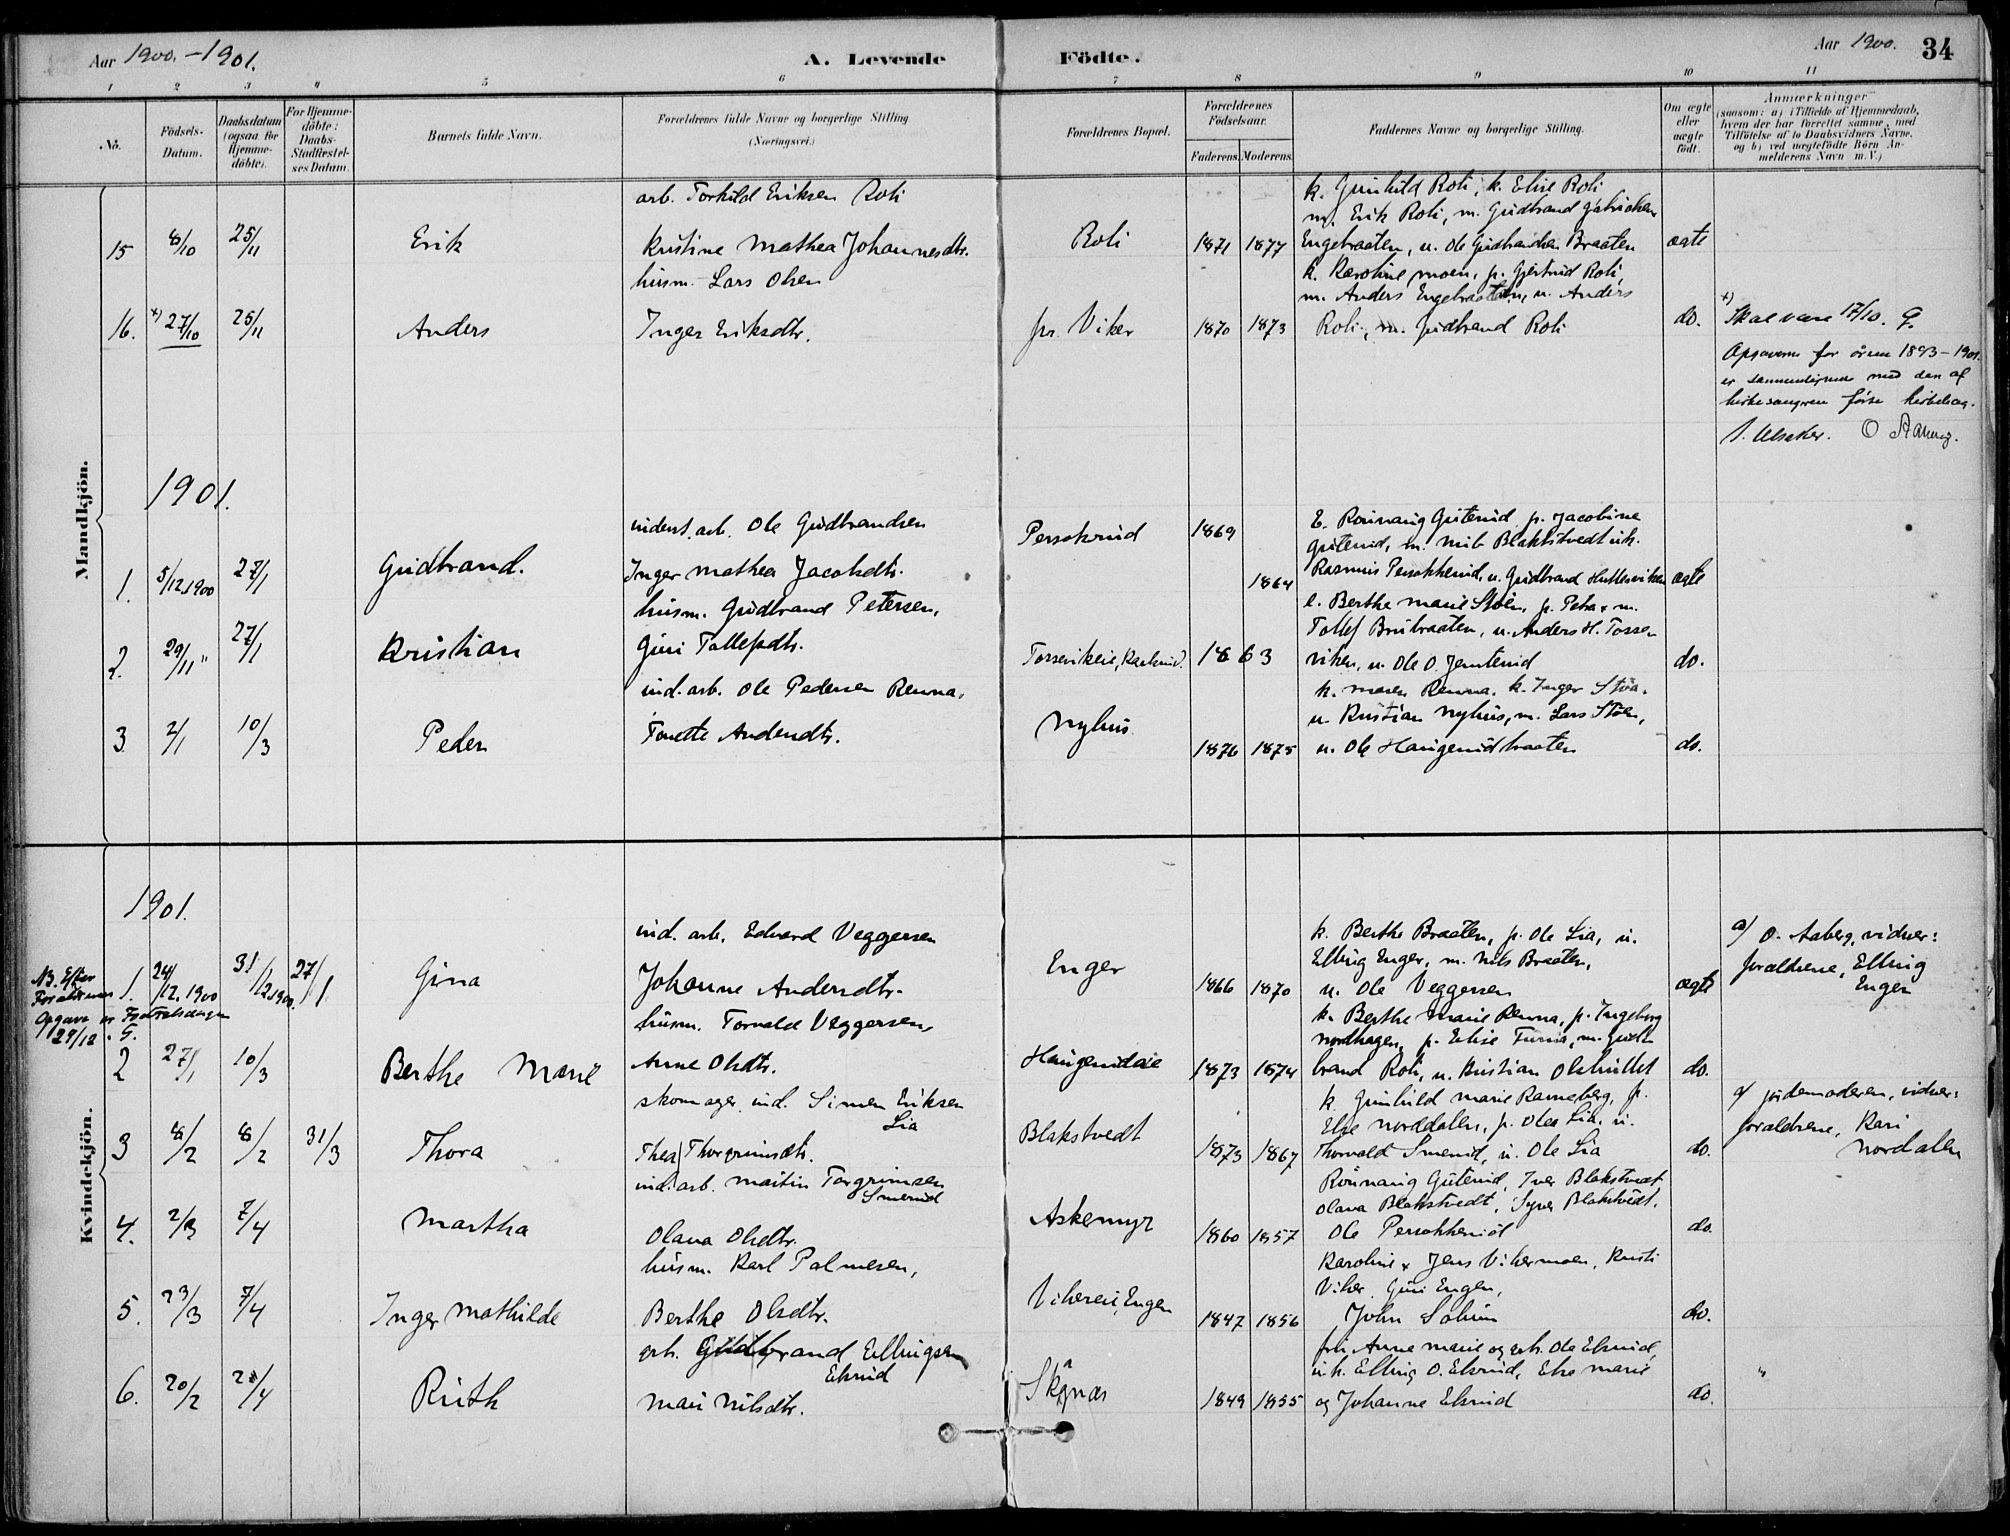 Aar 1900.-1901. A. Levende Födte. Aar 1900. 34
1 2 3 4 5 6 7 8 9 10 11
No.
Födsels-Datum.
Daabsdatum (ogsaa for Hjemme-döbte).
For Hjemme-döbte: Daabs-Stadfæstel-ses Datum.
Barnets fulde Navn.
Forældrenes fulde Navne og borgerlige Stilling (Næringsvei.)
Forældrenes Bopæl.
Forældrenes Födselsaar.
Faderens. Moderens.
Faddernes Navne og borgerlige Stilling.
Om ægte eller uægte födt.
Anmærkninger (saasom: a) i Tilfælde af Hjemmedaab, hvem der har forrettet samme, med Tilföielse af to Daabsvidners Navne. og b) ved uægtefödte Börn An-melderens Navn m. V.)
Mandkjön.
arb. Torkild Eriksen Roli
k. Gunhild Roli, k. Elise Roli
m. Erik Roli, m. Gudbrand
15 8/10 25/11 Erik Kristine Mathea Johannesdtr. Roli 1871 1877 Engebraaten, u. Ole Gudbrandsen Braaten ægte
husm. Lars Olsen
k. Karoline Moen, p. Gjertrud Roli,
m. Anders Engebraaten, u. Anders
16. x) 27/10 25/11 Anders Inger Eriksdtr. pr. Viker 1870 1873 Roli, m. Gudbrand Roli do.
x) Skal være 17/10. G.
Opgaverne for årene 1893-1901
er sammenlignet med den af
kirkesangeren førte kirkebog.
1901.
inderst. arb. Ole Gudbrandsen Persokrud 1869
E. Rønnaug Guterud, p. Jacobine
Guterud, m. Blakstvedt
1. 5/12.1900 27/1 Gudbrand. Inger Mathea Jacobsdtr. 1864 Rasmus Persokkerud, u. Gudbrand ægte
husm. Gudbrand Petersen,
e. Berthe Marie Støen, p. Petra x m.
Tollef Brubraaten, u. Anders H. Tosse-
2. 29/11 " 27/1 Kristian Guri Tollefsdtr. Tossevikeie, 1863 viken, u. Ole O. do.
ind. arb. Ole Pedersen Renna,
k. Maren Renna, k. Inger
u. Kristian Nyhus, m. Lars Støen,
3 2/1 10/3 Peder Tonette Andersdtr. Nyhus 1876 1875 u. Ole Haugerudbraaten do.
Kvindekjön.
1901.
ind. arb. Edvard Veggersen
k. Berthe Braaten, p. Ole Lia, u.
Elling Enger, m. Nils Braaten,
NB. Efter Forældrenes Opgave er Fødselsdagen 29/12. G.
1. 24/12.1900 31/12.1900 27/1 Gina Johanne Andersdtr. Enger 1866 1870 u. Ole Veggersen ægte
a) O. Aaberg, vidner:
forældrene, Elling
Enger
husm. Torvald Veggersen,
k. Berthe Marie Renna, p. Ingeborg
Nordhagen, p. Elise, m. Gud-
2 27/1 10/3 Berthe Marie Anne Olsdtr. Haugerudeie 1873 1874 brand Roli, u. Kristian Olshullet do.
skomager. ind. Simen Eriksen Lia
k. Gunhild Marie Rameberg, p.
Else Norddalen, p. Olea Lia, u.
3 8/2 8/2 31/3 Thora Thea Thorgrimsdtr. Blakstvedt 1873 1867 Thorvald Smerud, u. Ole Lia do.
a) jordemoderen, vidner:
forældrene, Kari
Nordalen
ind. arb. Martin Torgrimsen Smerud
Rønnaug Guterud, Iver Blakstvedt
Olava Blakstvedt, Syver Blakstvedt.
4. 2/3 7/4 Martha Olava Olsdtr. Askemyr 1860 1857 Ole Persokkerud do.
husm. Karl Palmesen,
Karoline x Jens Vikermoen, Kristi
Viker, Guri Engen,
5. 23/3 7/4 Inger Mathilde Berthe Olsdtr. Vikereie, Engen 1847 1856 John do.
grb. Gudbrand Ellingsen Elsrud
frk Anne Marie og grb. Ole Elsrud,
u.k. Elling O. Elsrud, Else Marie
6. 20/2 28/4 Ruth Mari Nilsdtr. Skagnæs 1849 1855 og Johanne Elsrud do. "